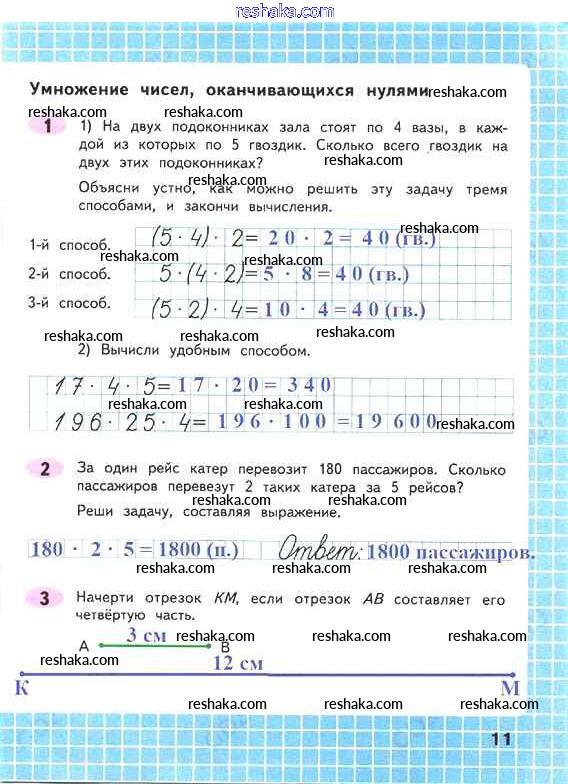 reshaka.com
Умножение чисел, оканчивающихся нулями reshaka.com
reshaka.com reshaka.com
1 1) На двух подоконниках зала стоят по 4 вазы, в каж-
дой из которых по 5 гвоздик. Сколько всего гвоздик на
двух этих подоконниках?
reshaka.com reshaka.com
Объясни устно, как можно решить эту задачу тремя
способами, и закончи вычисления.
reshaka.com
1-й способ. (5 · 4) · 2 = 20 · 2 = 40 (гв.)
reshaka.com reshaka.com
2-й способ. 5 · (4 · 2) = 5 · 8 = 40 (гв.)
reshaka.com
3-й способ. (5 · 2) · 4 = 10 · 4 = 40 (гв.)
reshaka.com reshaka.com
2) Вычисли удобным способом.
17 · 4 · 5 = 17 · 20 = 340
reshaka.com reshaka.com
196 · 25 · 4 = 196 · 100 = 19600 reshaka.com
reshaka.com
2 За один рейс катер перевозит 180 пассажиров. Сколько
пассажиров перевезут 2 таких катера за 5 рейсов?
reshaka.com reshaka.com
Реши задачу, составляя выражение.
180 · 2 · 5 = 1800 (п.) Ответ: 1800 пассажиров.
reshaka.com reshaka.com
3 Начерти отрезок КМ, если отрезок АВ составляет его
четвёртую часть.
А 3 см В reshaka.com reshaka.com
reshaka.com 12 см
К М
reshaka.com reshaka.com
11
reshaka.com